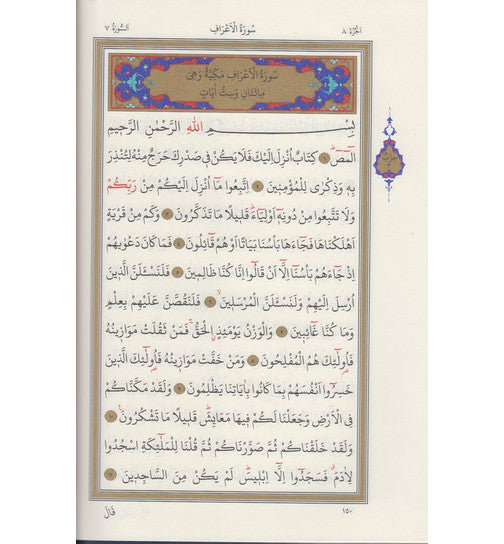 اَلْجُزْءُ ٨ سُورَةُ الْاَعْرَافِ اَلسُّورَةُ ٧
سُورَةُ الْاَعْرَافِ مَكِّيَّةٌ وَهِيَ
مِائَتَانِ وَسِتُّ اٰيَاتٍ
بِسْمِ اللّٰهِ الرَّحْمٰنِ الرَّحِيمِ
الٓمٓصٓ ١ كِتَابٌ اُنْزِلَ اِلَيْكَ فَلَا يَكُنْ فِي صَدْرِكَ حَرَجٌ مِنْهُ لِتُنْذِرَ
بِهِ وَذِكْرٰى لِلْمُؤْمِنِينَ ٢ اِتَّبِعُوا مَٓا اُنْزِلَ اِلَيْكُمْ مِنْ رَبِّكُمْ
وَلَا تَتَّبِعُوا مِنْ دُونِهِٓ اَوْلِيَٓاءَۜ قَلِيلًا مَا تَذَكَّرُونَ ٣ وَكَمْ مِنْ قَرْيَةٍ
اَهْلَكْنَاهَا فَجَٓاءَهَا بَأْسُنَا بَيَاتًا اَوْ هُمْ قَٓائِلُونَ ٤ فَمَا كَانَ دَعْوٰيهُمْ
اِذْ جَٓاءَهُمْ بَأْسُنَٓا اِلَّٓا اَنْ قَالُٓوا اِنَّا كُنَّا ظَالِمِينَ ٥ فَلَنَسْـَٔلَنَّ الَّذِينَ
اُرْسِلَ اِلَيْهِمْ وَلَنَسْـَٔلَنَّ الْمُرْسَلِينَۙ ٦ فَلَنَقُصَّنَّ عَلَيْهِمْ بِعِلْمٍ
وَمَا كُنَّا غَٓائِبِينَ ٧ وَالْوَزْنُ يَوْمَئِذٍۨ الْحَقُّۚ فَمَنْ ثَقُلَتْ مَوَازِينُهُ
فَاُو۬لٰٓئِكَ هُمُ الْمُفْلِحُونَ ٨ وَمَنْ خَفَّتْ مَوَازِينُهُ فَاُو۬لٰٓئِكَ الَّذِينَ
خَسِرُٓوا اَنْفُسَهُمْ بِمَا كَانُوا بِاٰيَاتِنَا يَظْلِمُونَ ٩ وَلَقَدْ مَكَّنَّاكُمْ
فِي الْاَرْضِ وَجَعَلْنَا لَكُمْ فِيهَا مَعَايِشَۜ قَلِيلًا مَا تَشْكُرُونَ۟ ١٠
وَلَقَدْ خَلَقْنَاكُمْ ثُمَّ صَوَّرْنَاكُمْ ثُمَّ قُلْنَا لِلْمَلٰٓئِكَةِ اسْجُدُوا
لِاٰدَمَۗ فَسَجَدُٓوا اِلَّٓا اِبْلِيسَۜ لَمْ يَكُنْ مِنَ السَّاجِدِينَ ١١
١٥٠ قَالَ